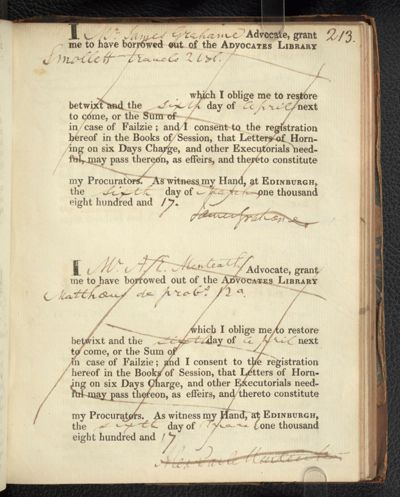 213.
I Mr. James Grahame Advocate, grant
me to have borrowed out of the ADVOCATES LIBRARY
Smollett travels 2 vol.
which I oblige me to restore
betwixt and the sixth day of April next
to come, or the Sum of
in case of Failzie; and I consent to the registration
hereof in the Books of Session, that Letters of Horn-
ing on six Days Charge, and other Executorials need-
ful, may pass thereon, as effeirs, and thereto constitute
my Procurators. As witness my Hand, at EDINBURGH,
the sixth day of March one thousand
eight hundred and 17.
James Grahame
I Mr. A. Menteath Advocate, grant
me to have borrowed out of the ADVOCATES LIBRARY
Matthaeus de prob.
which I oblige me to restore
betwixt and the sixth day of April next
to come, or the Sum of
in case of Failzie; and I consent to the registration
hereof in the Books of Session, that Letters of Horn-
ing on six Days Charge, and other Executorials need-
ful may pass thereon, as effeirs, and thereto constitute
my Procurators. As witness my Hand, at EDINBURGH,
the sixth day of March one thousand
eight hundred and 17
Menteath